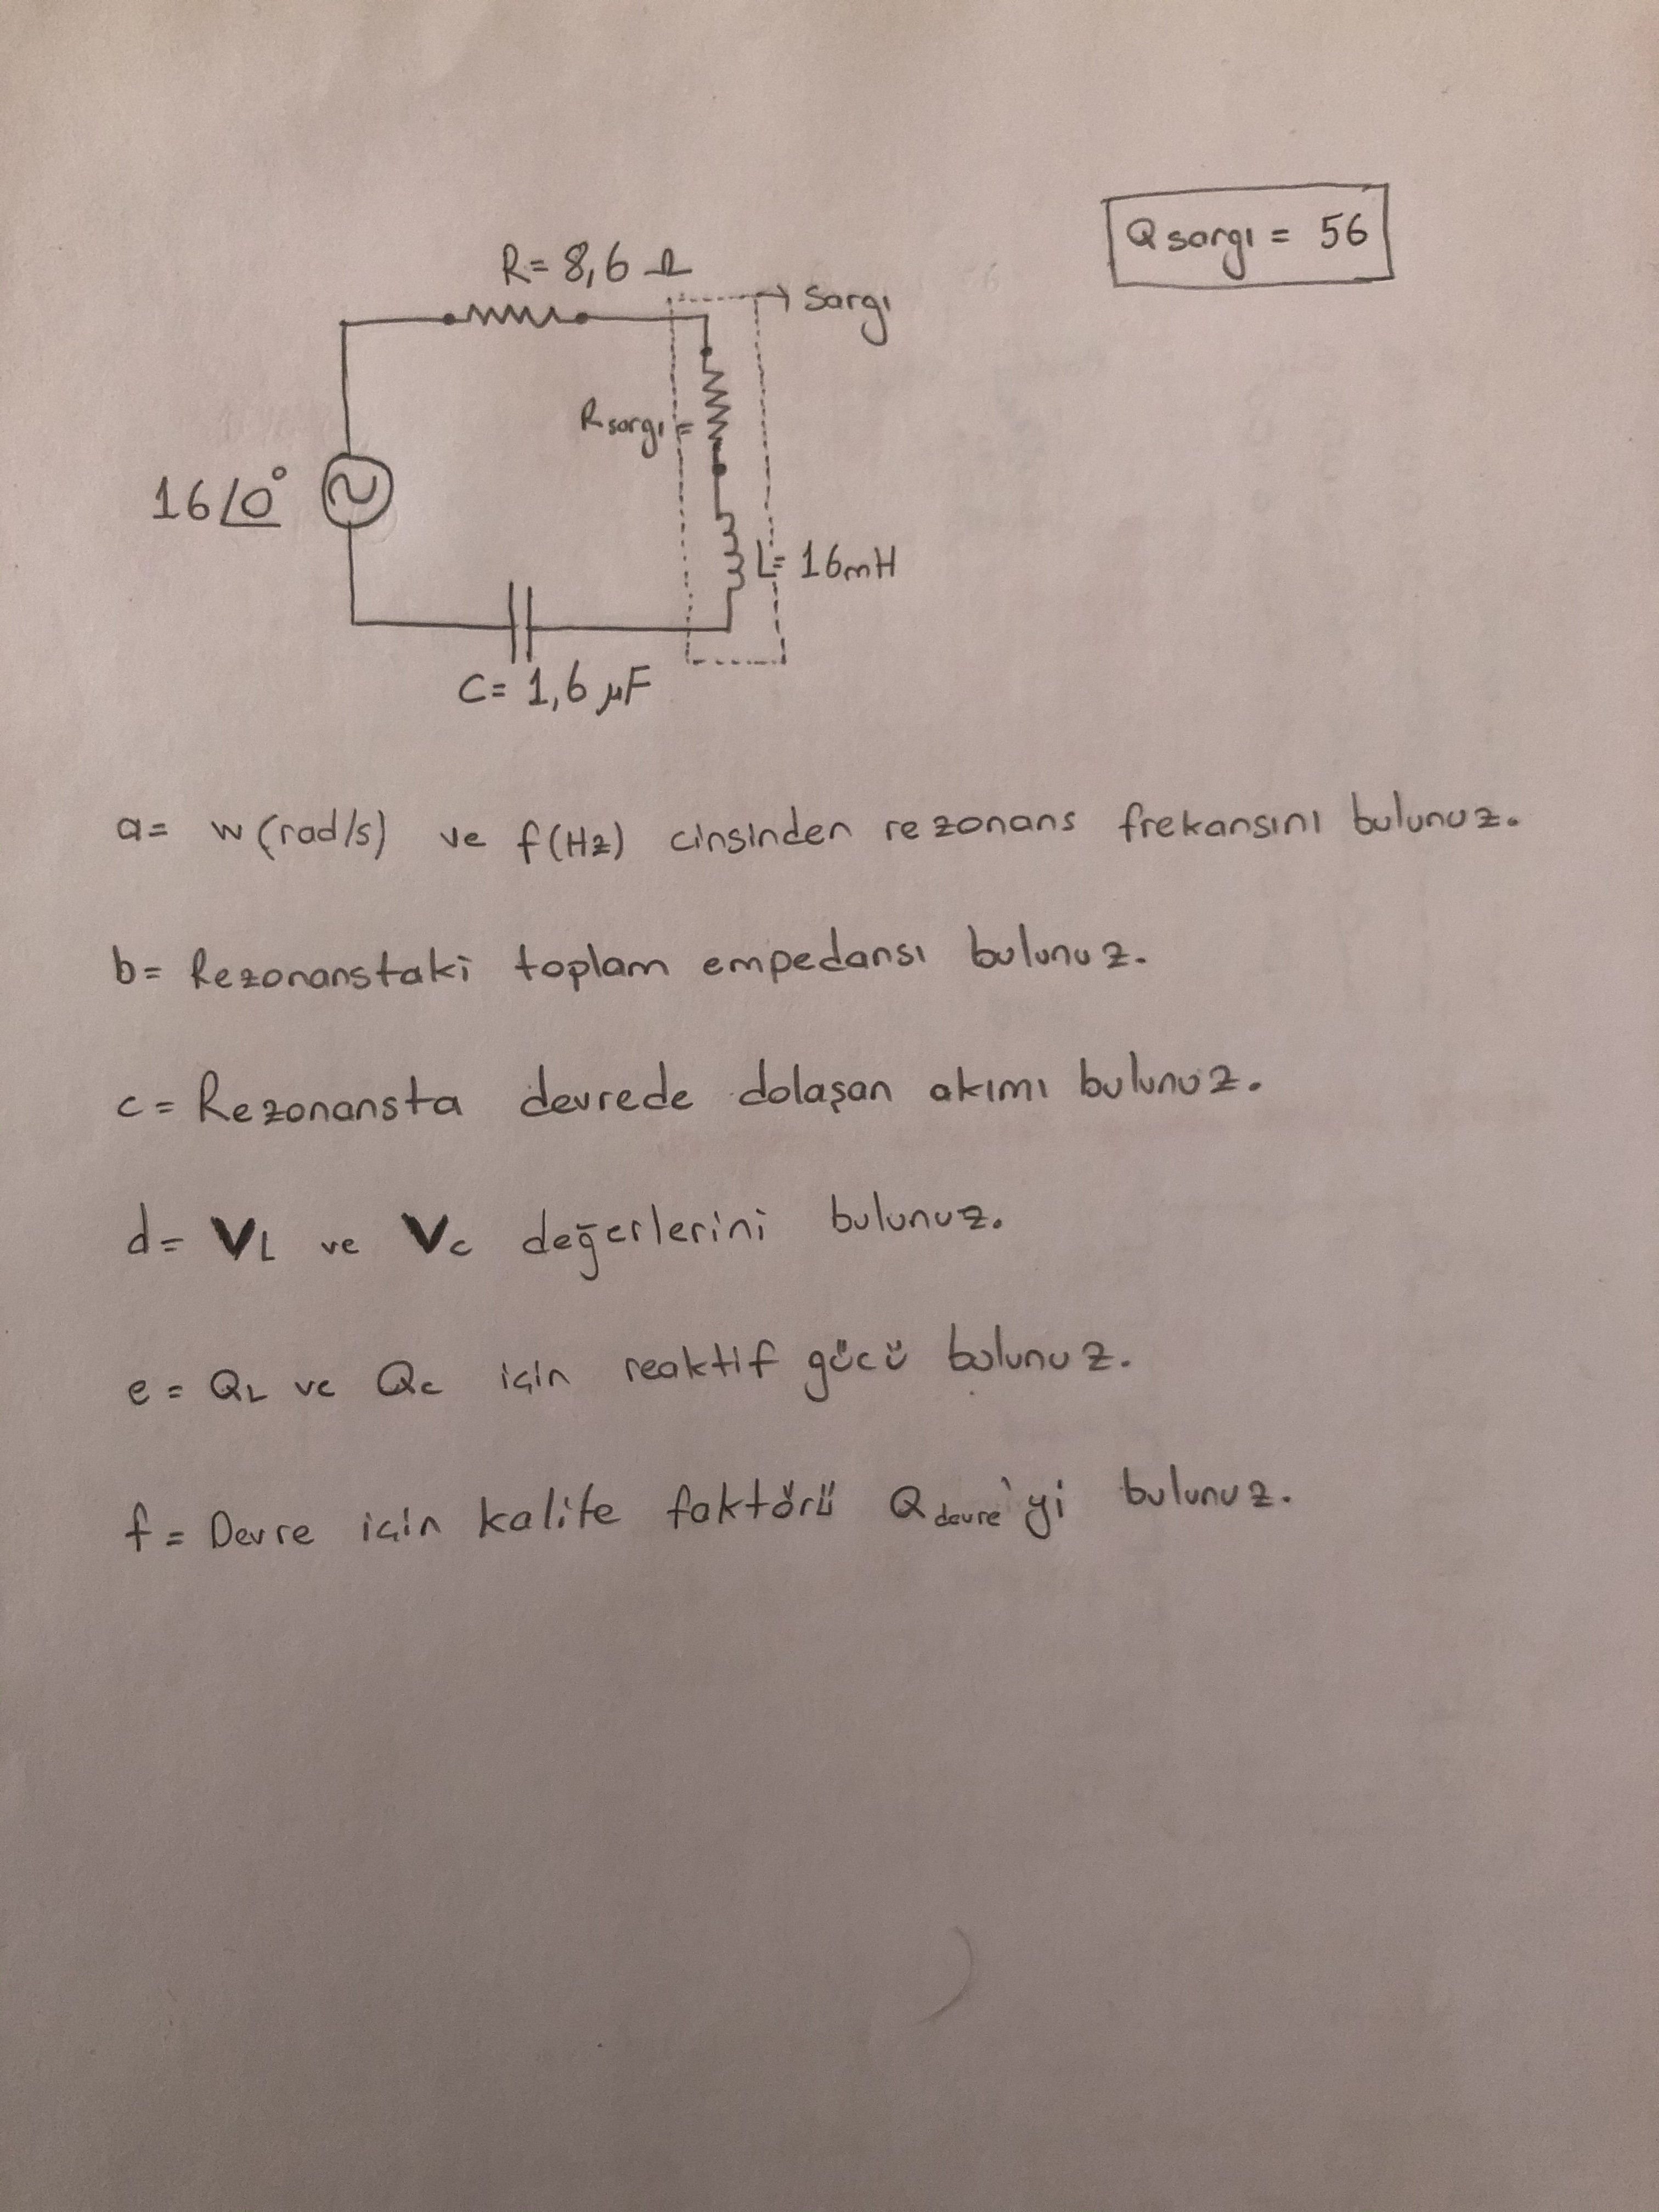 Qsargı = 56
R= 8,6 Ω
→ Sargı
Rsargı =
16/0°
L= 16mH
C= 1,6 µF
a= w(rad/s) ve f(Hz) cinsinden rezonans frekansını bulunuz.
b= Rezonanstaki toplam empedansı bulunuz.
c= Rezonansta devrede dolaşan akımı bulunuz.
d= VL ve Vc değerlerini bulunuz.
e= QL ve Qc için reaktif gücü bulunuz.
f= Devre için kalite faktörü Qdevre'yi bulunuz.